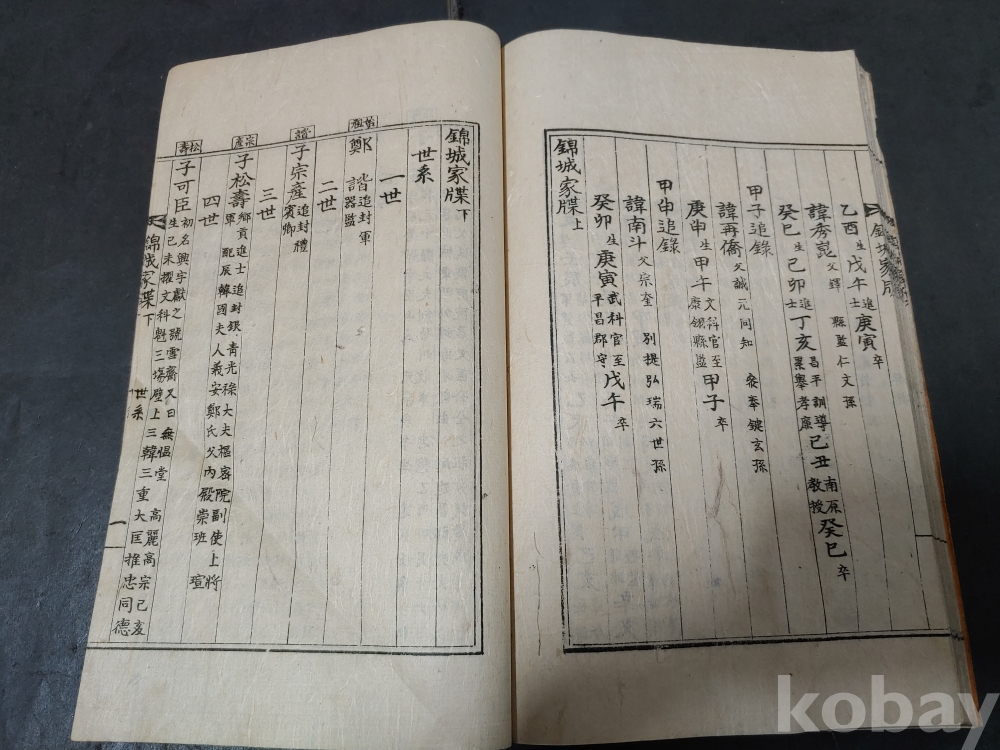 錦城家牒
乙酉生戊午進士庚寅卒
諱秀崑父繹 縣監仁文孫
癸巳生己卯進士丁亥昌平訓導累擧孝廉己丑南原教授癸巳卒
甲子追錄
諱再僑父誠元同知 參奉鍵玄孫
庚申生甲午文科官至康翎縣監甲子卒
甲申追錄
諱南斗父宗奎 別提弘瑞六世孫
癸卯生庚寅武科官至平昌郡守戊午卒
錦城家牒上
錦城家牒下
世系
一世
始祖
鄭 諧追封軍器監
二世
諧
子宗產追封禮賓卿
三世
宗產
子松壽鄉貢進士追封銀青光祿大夫樞密院副使上將軍 配辰韓國夫人義安鄭氏父內殿崇班 瑄
四世
松壽
子可臣初名興字獻之號雪齋又曰無慍堂 高麗高宗己亥生己未擢文科魁三場壁上三韓三重大匡推忠同德
錦城家牒下 世系 一
kobay